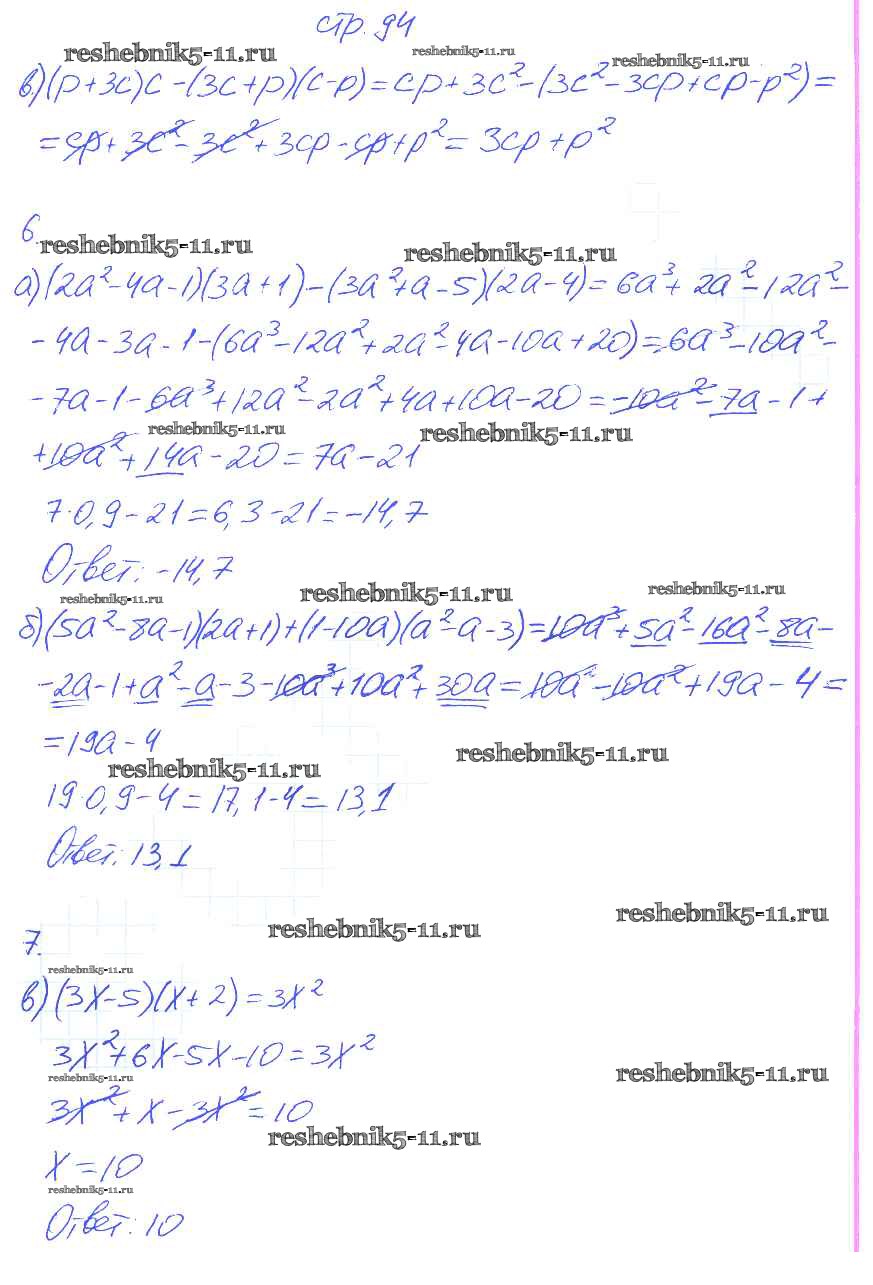 стр. 94
reshebnik5-11.ru reshebnik5-11.ru reshebnik5-11.ru
в)(p+3c)c-(3c+p)(c-p)=cp+3c²-(3c²-3cp+cp-p²)=
=cp+3c²-3c²+3cp-cp+p²=3cp+p²
6.
reshebnik5-11.ru reshebnik5-11.ru
а)(2a²-4a-1)(3a+1)-(3a²+a-5)(2a-4)=6a³+2a²-12a²-
-4a-3a-1-(6a³-12a²+2a²-4a-10a+20)=6a³-10a²-
-7a-1-6a³+12a²-2a²+4a+10a-20=-10a²-7a-1+
reshebnik5-11.ru reshebnik5-11.ru
+10a²+14a-20=7a-21
7·0,9-21=6,3-21=-14,7
Ответ: -14,7
reshebnik5-11.ru reshebnik5-11.ru reshebnik5-11.ru
б)(5a²-8a-1)(2a+1)+(1-10a)(a²-a-3)=10a³+5a²-16a²-8a-
-2a-1+a²-a-3-10a³+10a²+30a=10a²-10a²+19a-4=
=19a-4
reshebnik5-11.ru reshebnik5-11.ru
19·0,9-4=17,1-4=13,1
Ответ: 13,1
reshebnik5-11.ru reshebnik5-11.ru
7.
reshebnik5-11.ru
в)(3x-5)(x+2)=3x²
3x²+6x-5x-10=3x²
reshebnik5-11.ru reshebnik5-11.ru
3x²+x-3x²=10
reshebnik5-11.ru
x=10
reshebnik5-11.ru
Ответ: 10